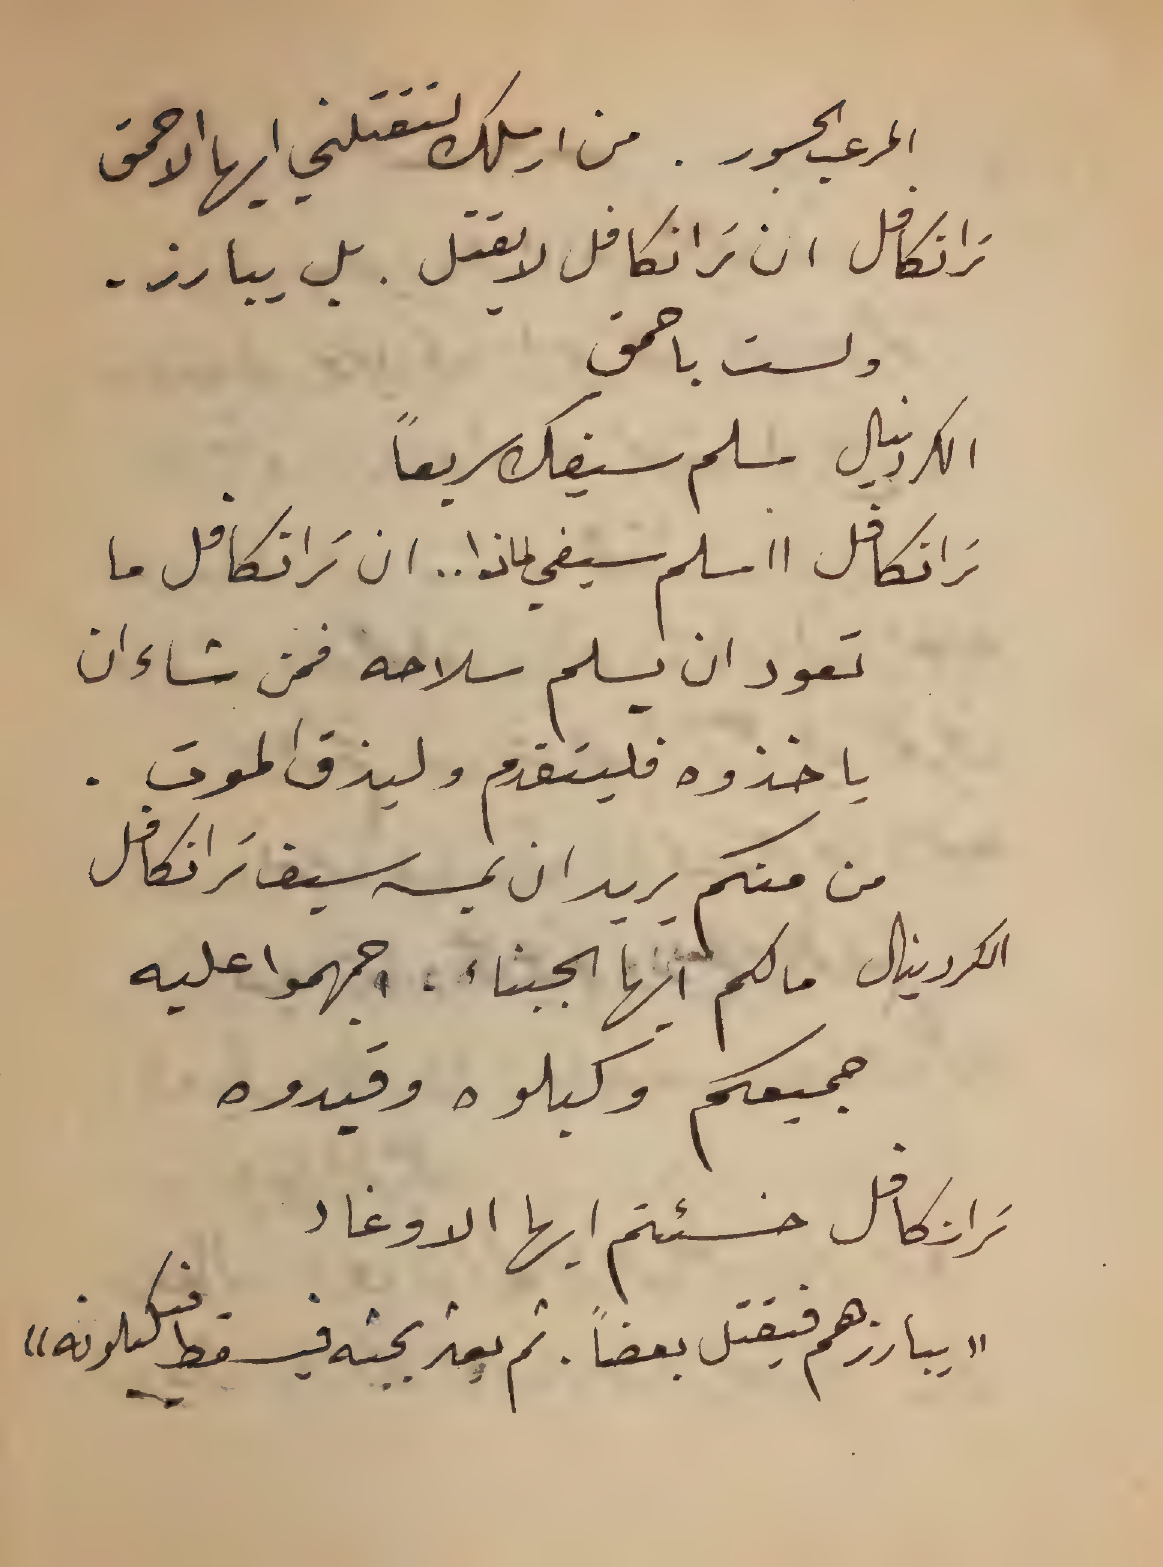 المرعب الجسور . من ارسلك لتقتلني ايها الاحمق
تَرانكافل ان تَرانكافل لا يقتل . بل يبارز -
ولست باحمق
الكردينال سلم سيفك سريعاً
تَرانكافل اا سلم سيفي لماذا .. ان تَرانكافل ما
تعود ان يسلم سلاحه فمن شاء ان
ياخذوه فليتقدم وليذق الموت .
من منكم يريد ان يمس سيف تَرانكافل
الكردينال مالكم ايها الجبناء . اجهموا عليه
جميعكم وكبلوه وقيدوه
تَرانكافل خسئتم ايها الاوغاد
« يبارزهم فيقتل بعضاً . ثم يعثر بجثه فيسقط فيكبلونه »